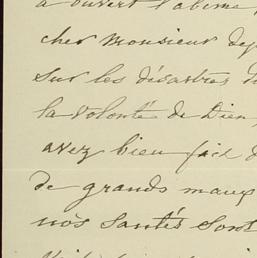 a ouvert l'abîme,
cher Monsieur
sur les désastres
la volonté de Dieu,
avez bien fait d
de grands maux
nos santés sont